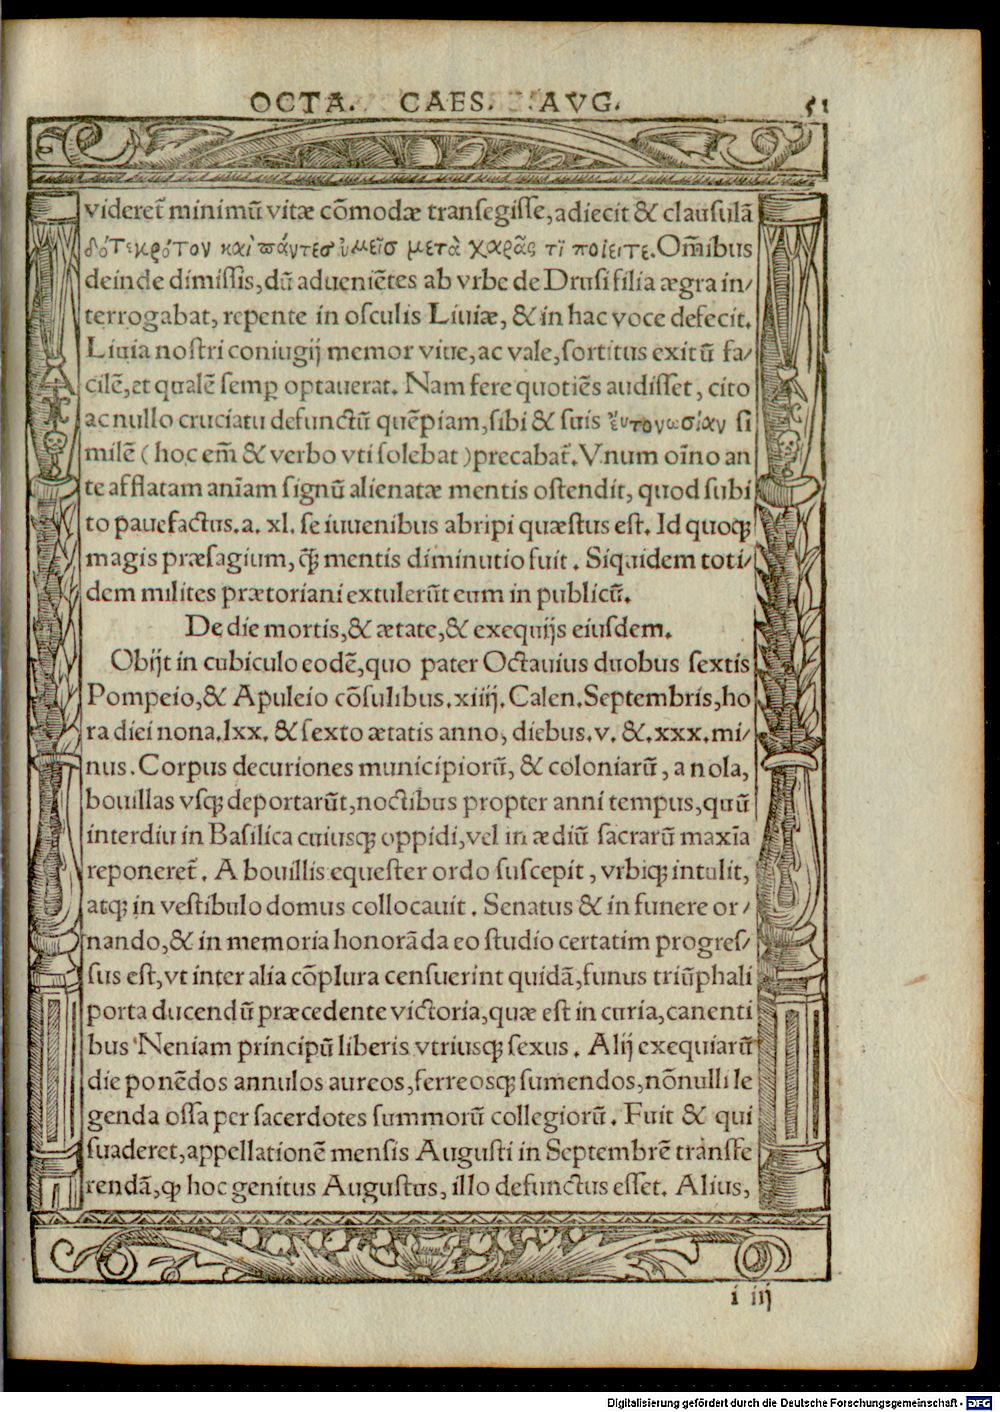 OCTA. CAES. AVG. 51
videret̃ minimũ vitæ cõmodæ transegisse, adiecit & clausulã
δότε κρότον καὶ πάντες ὑμεῖσ μετὰ χαρᾶς τὶ ποιειτε. Om̃ibus
deinde dimissis, dũ adueniẽtes ab vrbe de Drusi filia ægra in/
terrogabat, repente in osculis Liuiæ, & in hac voce defecit.
Liuia nostri coniugij memor viue, ac vale, sortitus exitũ fa/
cilẽ, et qualẽ semp optauerat. Nam fere quotiẽs audisset, cito
ac nullo cruciatu defunctũ quẽpiam, sibi & suis si
milẽ (hoc em̃ & verbo vti solebat) precabat̃. Vnum oĩno an
te afflatam anĩam signũ alienatæ mentis ostendit, quod subi
to pauefactus. a. xl. se iuuenibus abripi quæstus est. Id quoqȝ
magis præsagium, q̃ȝ mentis diminutio fuit. Siquidem toti/
dem milites prætoriani extulerũt eum in publicũ.
De die mortis, & ætate, & exequijs eiusdem.
Obijt in cubiculo eodẽ, quo pater Octauius duobus sextis
Pompeio, & Apuleio cõsulibus. xiiij. Calen. Septembris, ho
ra diei nona. lxx. & sexto ætatis anno, diebus. v. &. xxx. mi/
nus. Corpus decuriones municipiorũ, & coloniarũ, a nola,
bouillas vsqȝ deportarũt, noctibus propter anni tempus, quũ
interdiu in Basilica cuiusqȝ oppidi, vel in ædiũ sacrarũ maxĩa
reponeret̃. A bouillis equester ordo suscepit, vrbiqȝ intulit,
atqȝ in vestibulo domus collocauit. Senatus & in funere or/
nando, & in memoria honorãda eo studio certatim progres/
sus est, vt inter alia cõplura censuerint quidã, funus triũphali
porta ducendũ præcedente victoria, quæ est in curia, canenti
bus Neniam principũ liberis vtriusqȝ sexus. Alij exequiarũ
die ponẽdos annulos aureos, ferreosqȝ sumendos, nõnulli le
genda ossa per sacerdotes summorũ collegiorũ. Fuit & qui
suaderet, appellationẽ mensis Augusti in Septembrẽ transfe
rendã, ꝙ hoc genitus Augustus, illo defunctus esset. Alius,
i iij
Digitalisierung gefördert durch die Deutsche Forschungsgemeinschaft - DFG